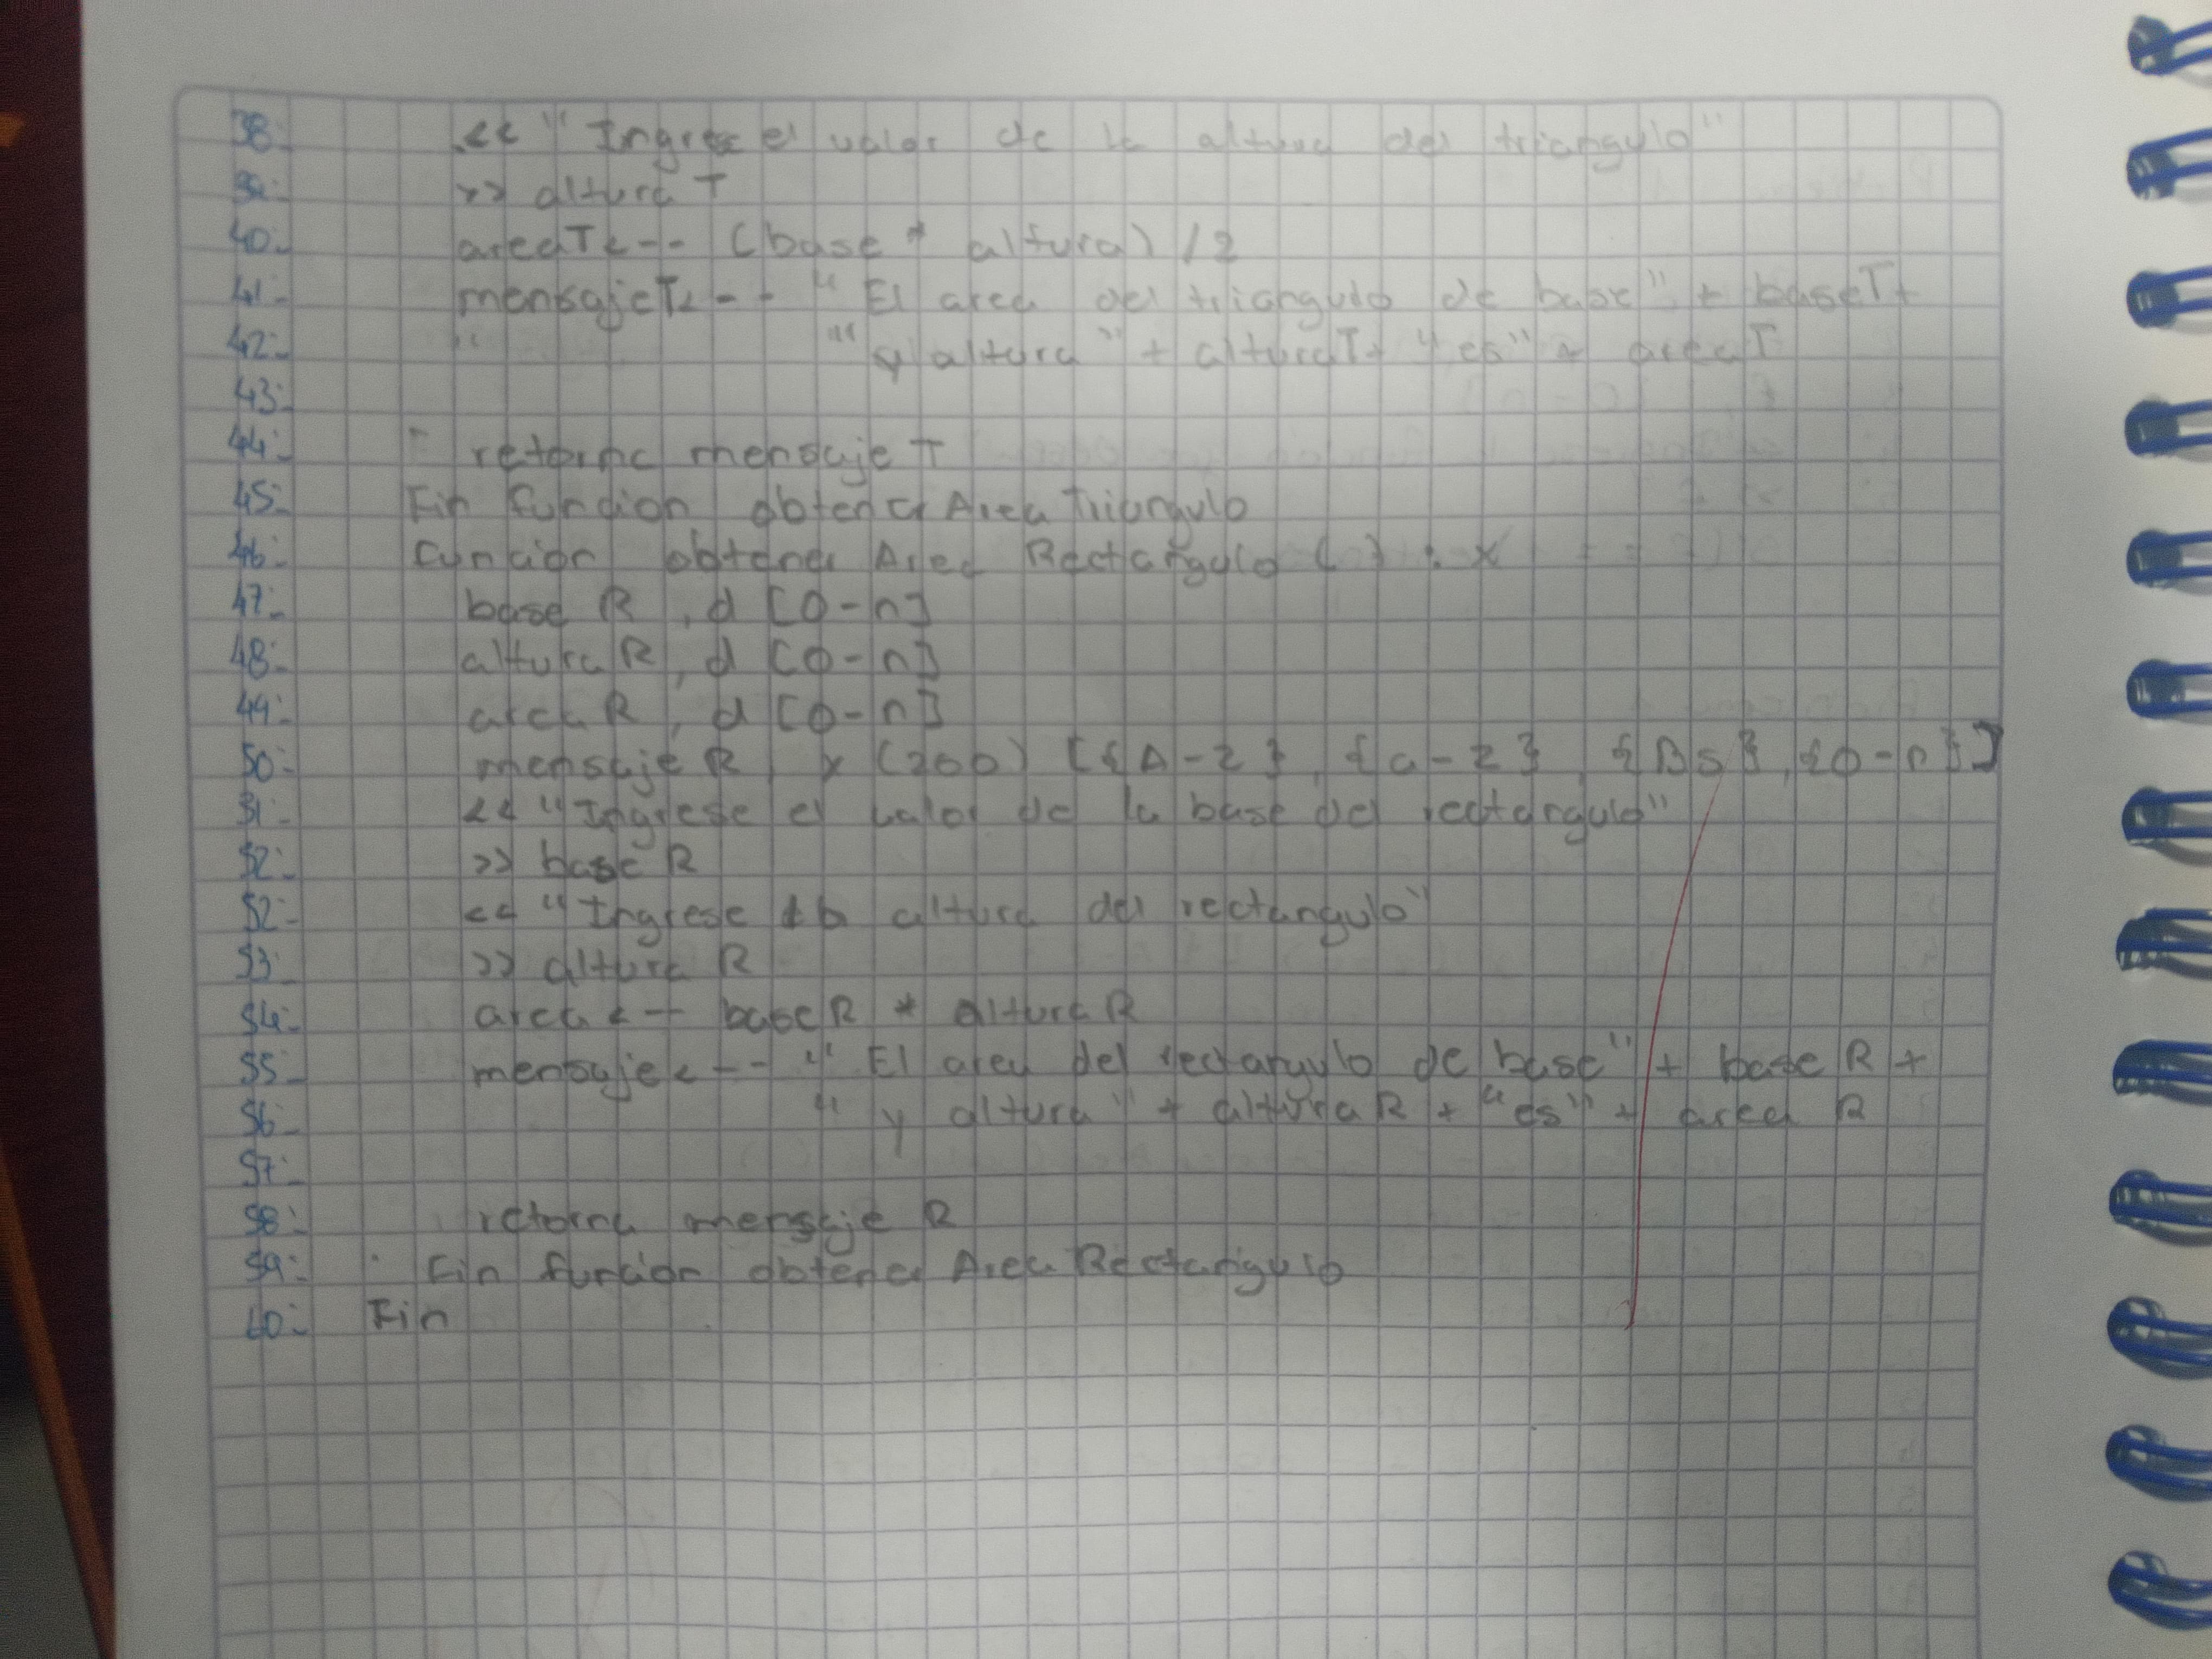 38.- << "Ingrese el valor de la altura del triangulo"
39.- >> altura T
40.- areaT<-- (base * altura) / 2
41.- mensajeT<-- "El area del triangulo de base" + baseT+
42.- " "" y altura" + alturaT+ "es" + areaT
43.-
44.- retorna mensaje T
45.- Fin funcion obtener Area Triangulo
46.- funcion obtener Area Rectangulo ( ) : x
47.- base R , d [0-n]
48.- altura R , d [0-n]
49.- area R , d [0-n]
50.- mensaje R , x (200) [{A-Z}, {a-z}, {Bs}, {0-n}]
51.- << "Ingrese el valor de la base del rectangulo"
52.- >> base R
52.- << "Ingrese la altura del rectangulo"
53.- >> altura R
54.- area <-- base R * altura R
55.- mensaje <-- "El area del rectangulo de base" + base R +
56.- "y altura" + altura R + "es" + area R
57.-
58.- retorna mensaje R
59.- Fin funcion obtener Area Rectangulo
60.- Fin